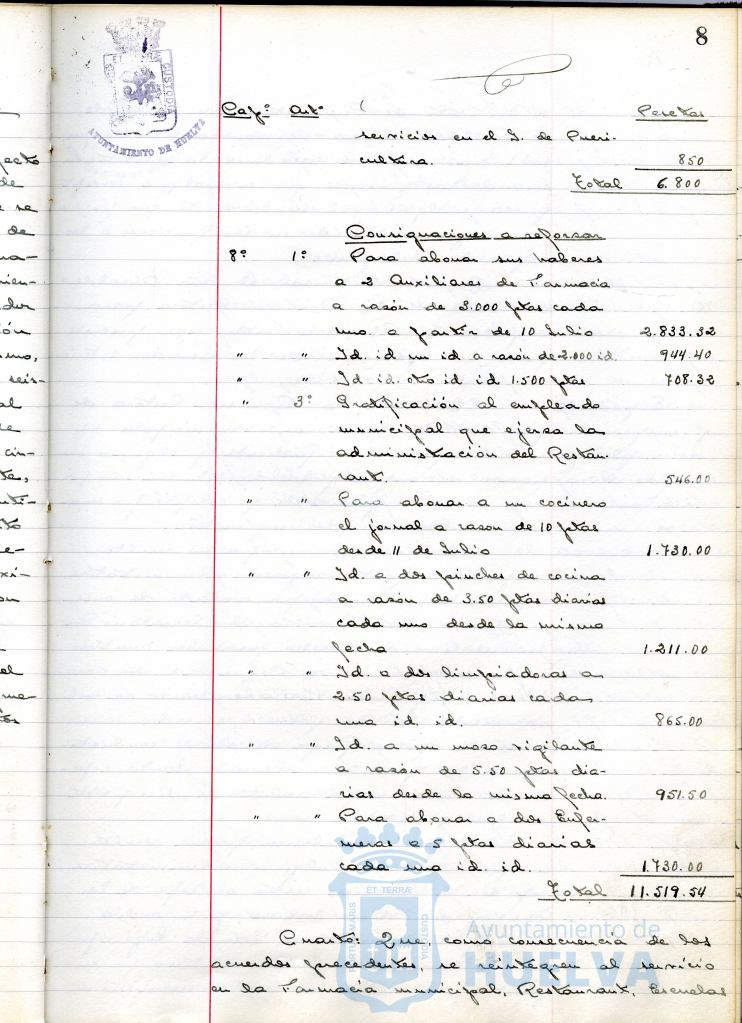 8
AYUNTAMIENTO DE HUELVA
CUSTODIA
Cap.º Art.º Pesetas
servicios en el I. de Pueri-
cultura. 850
Total 6.800
Consignaciones a reforzar
8º 1º Para abonar sus haberes
a 2 Auxiliares de Farmacia
a razón de 3.000 ptas cada
uno. a partir de 10 Julio 2.833.32
" " Id. id un id a razón de 2.000 id. 944.40
" " Id id. otro id id 1.500 ptas 708.32
" 3º Gratificación al empleado
municipal que ejerza la
administración del Restau-
rant. 546.00
" " Para abonar a un cocinero
el jornal a razon de 10 ptas
desde 11 de Julio 1.730.00
" " Id. a dos pinches de cocina
a razón de 3.50 ptas diarias
cada uno desde la misma
fecha 1.211.00
" " Id. a dos limpiadoras a
2.50 ptas diarias cada
una id. id. 865.00
" " Id. a un mozo vigilante
a razón de 5.50 ptas dia-
rias desde la misma fecha. 951.50
" " Para abonar a dos Enfer-
meras a 5 ptas diarias
cada una id. id. 1.730.00
Total 11.519.54
Cuarto: Que, como consecuencia de los
acuerdos precedentes, se reintegren al servicio
en la Farmacia municipal, Restaurant, Escuelas
ET TERRÆ
PORTUS MARIS
CUSTODIA
Ayuntamiento de
HUELVA